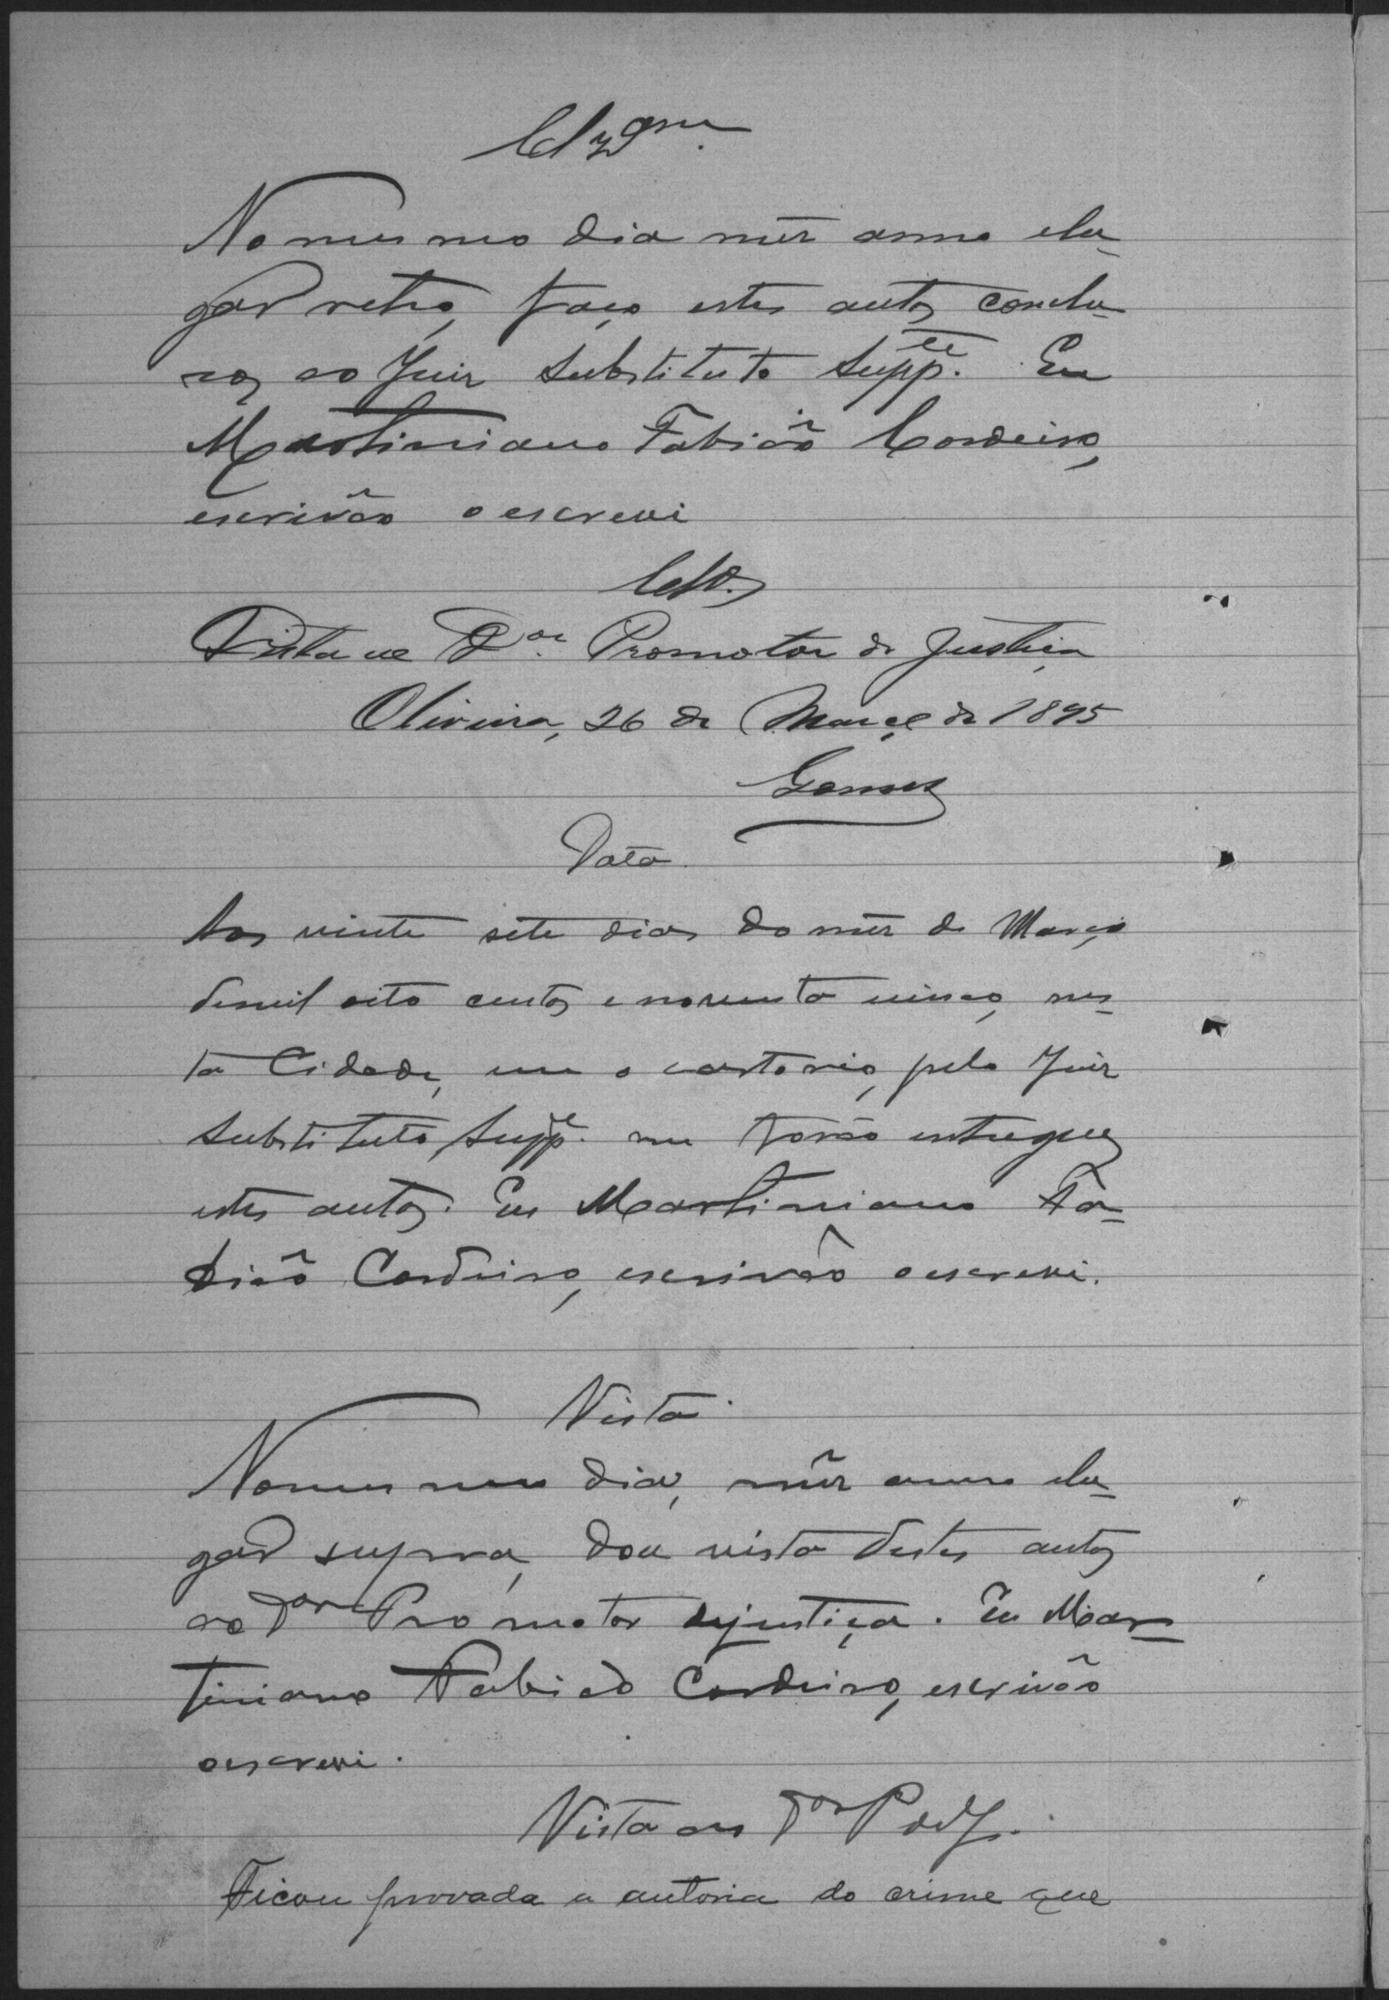 Clzam.
No mesmo dia mêz anno e lu-
gar retro, faço estes autos conclu-
zos ao Juiz Substituto Suppe. Eu
Martiniano Fabião Cordeiro,
escrivão o escrevi
Clos.
Vista ao Dor. Promotor de Justiça
Oliveira, 26 de Março de 1895
Gomes
Data
Aos vinte sete dias do mêz de Março
demil oito centos e noventa cinco, nes-
ta Cidade, em o cartorio, pelo Juiz
Substituto Suppe. me forão entregues
estes autos. Eu Martiniano Fa-
bião Cordeiro, escrivão o escrevi.
Vista
No mesmo dia, mêz anno e lu-
gar supra, dou vista destes autos
ao Dor Promotor dejustiça. Eu Mar-
tiniano Fabião Cordeiro, escrivão
o escrevi.
Vista ao Dor P de J.
Ficou provada a autoria do crime que